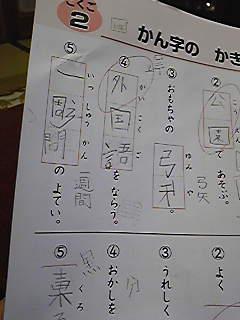 こくご
2
かん字の かき
② 公園 で あそぶ。
弓矢
③ おもちゃの 弓
ゆみや
④ 外国語 をならう。
がいこくご
⑤ 一彫間 のよてい。
いっしゅうかん
一週間
② よく
③ うれしく
④ おかしを
⑤
黒
くろ